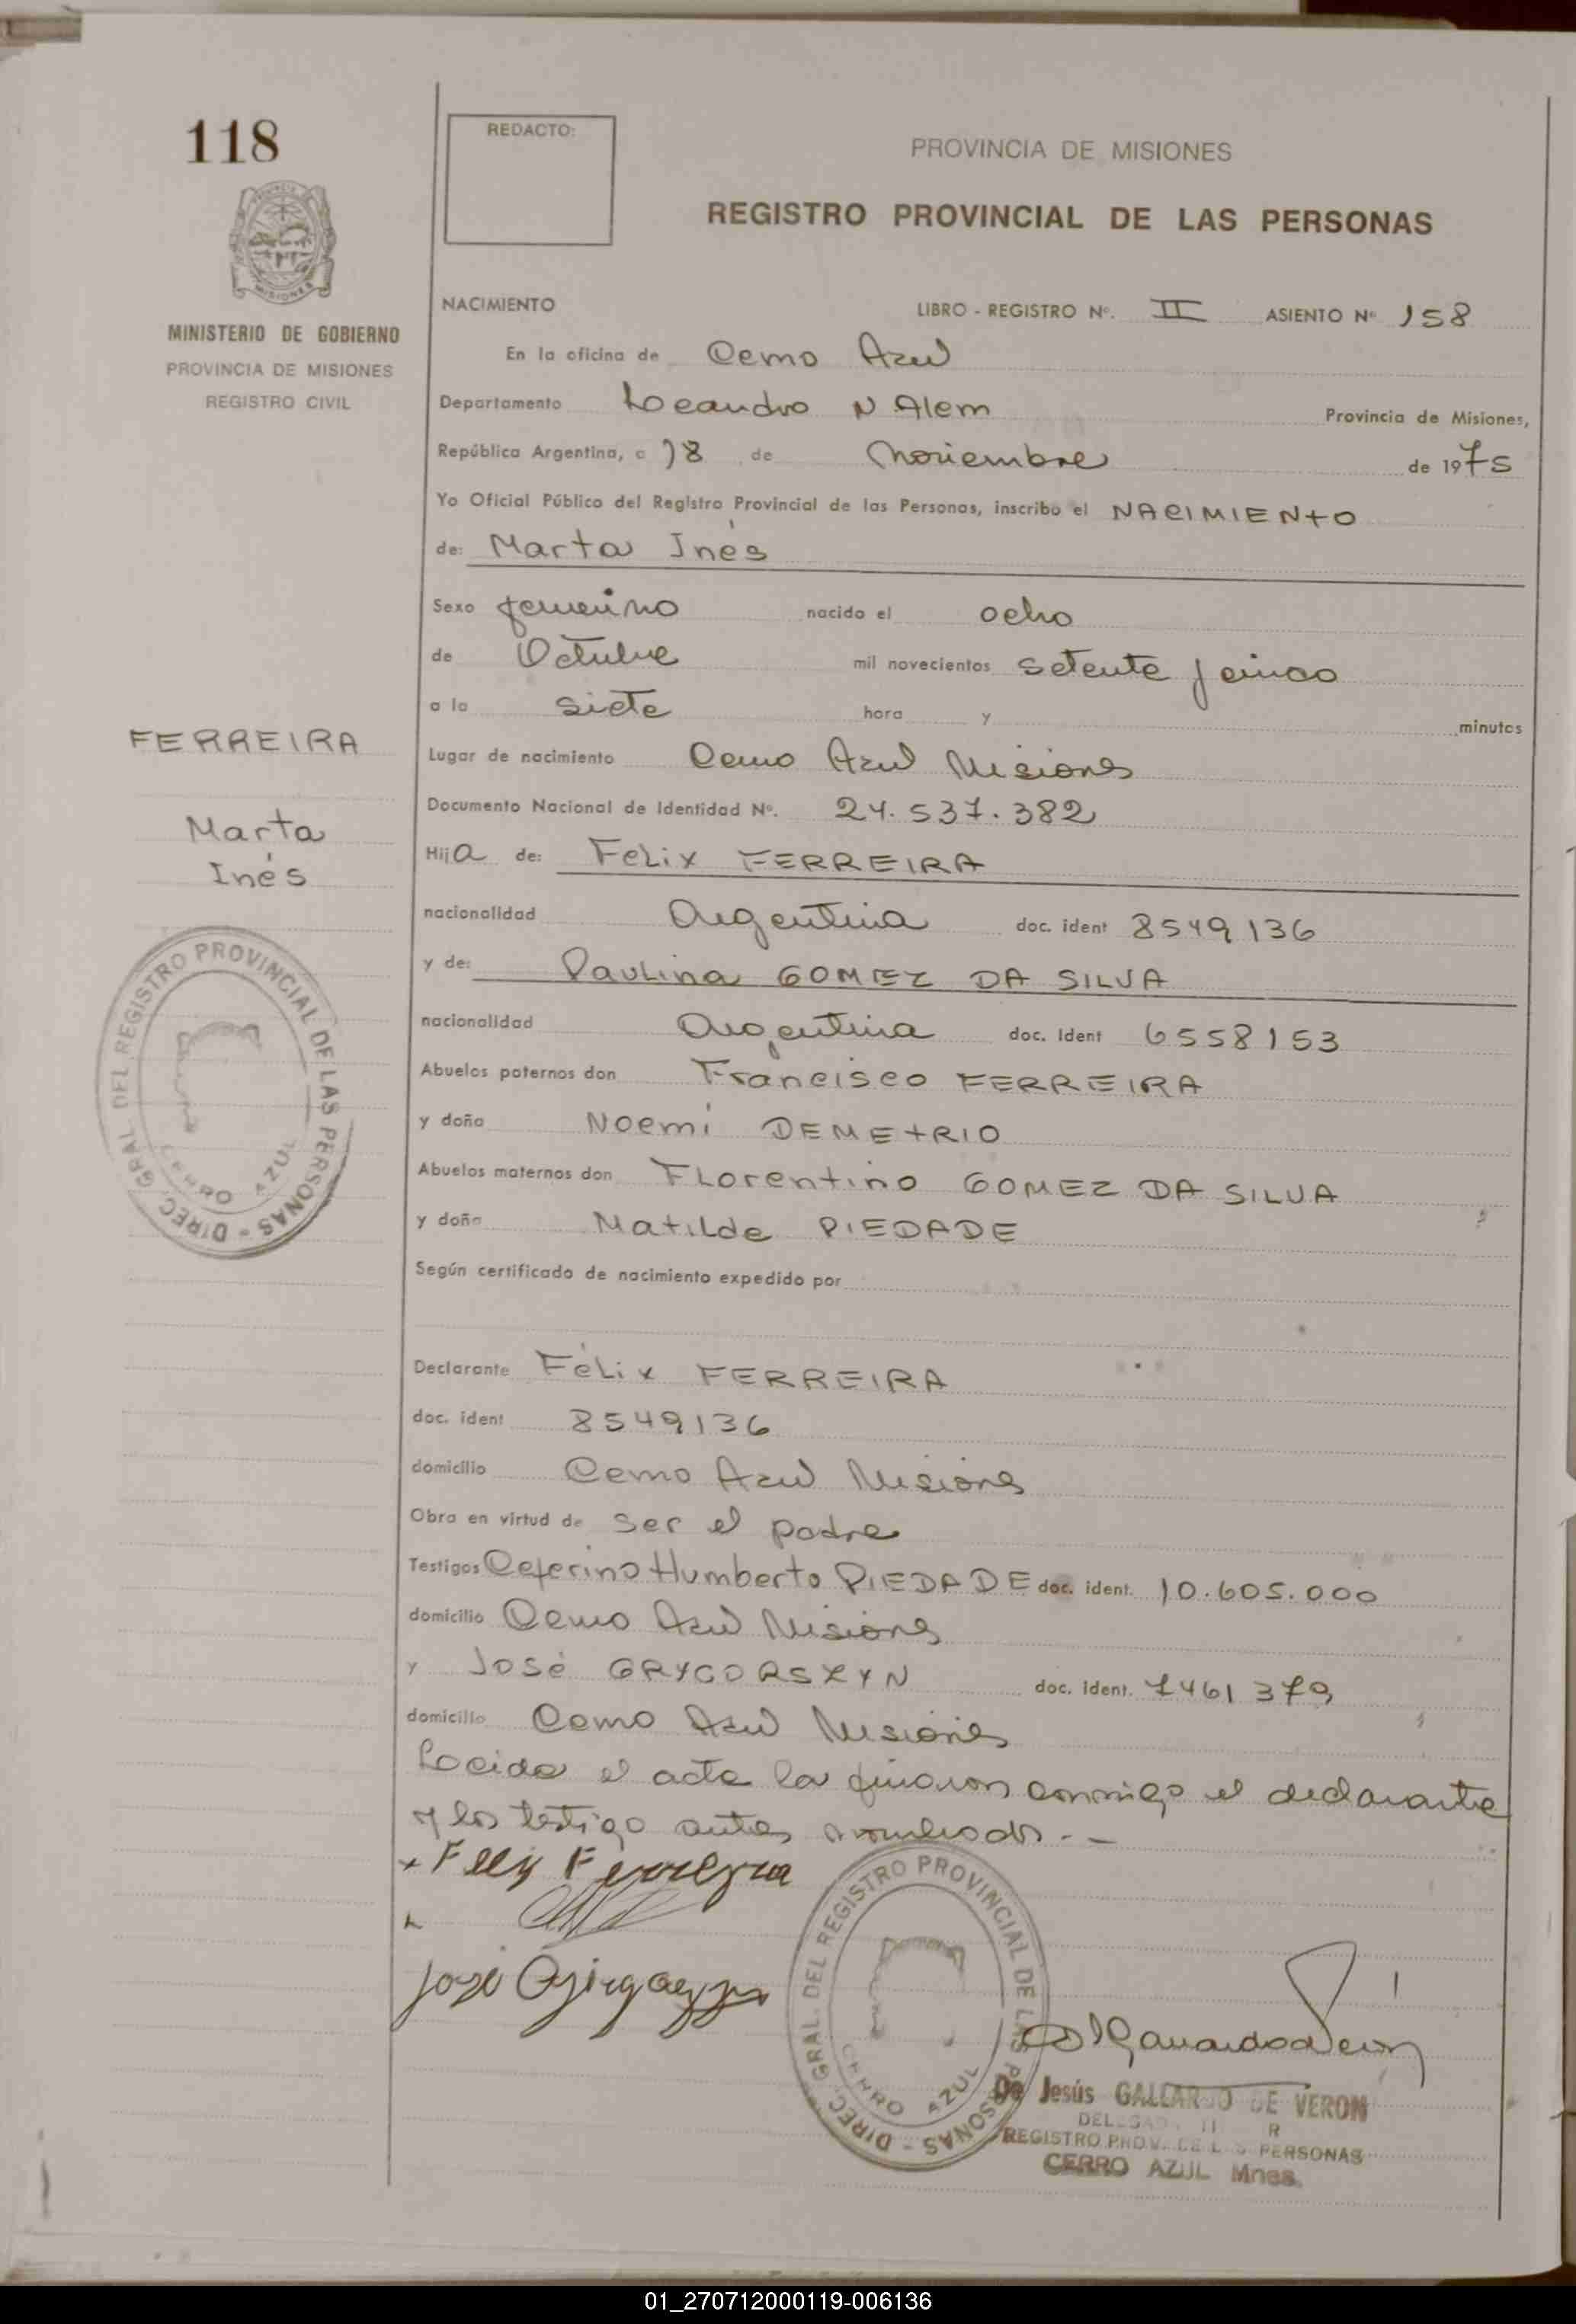 118
REDACTO:
PROVINCIA DE MISIONES
REGISTRO PROVINCIAL DE LAS PERSONAS
MISIONES
MINISTERIO DE GOBIERNO
PROVINCIA DE MISIONES
REGISTRO CIVIL
NACIMIENTO LIBRO - REGISTRO Nº. II ASIENTO Nº 158
En la oficina de Cerro Azul
Departamento Leandro N Alem Provincia de Misiones,
República Argentina, a 18 de Noviembre de 1975
Yo Oficial Público del Registro Provincial de las Personas, inscribo el NACIMIENTO
de: Marta Inés
Sexo femenino nacido el ocho
de Octubre mil novecientos setenta y cinco
a la siete hora y minutos
FERREIRA
Marta
Inés
Lugar de nacimiento Cerro Azul Misiones
Documento Nacional de Identidad Nº. 24.537.382
Hija de: Felix FERREIRA
nacionalidad Argentina doc. ident 8549136
y de: Paulina GOMEZ DA SILVA
nacionalidad Argentina doc. ident 6558153
Abuelos paternos don Francisco FERREIRA
y doña Noemi DEMETRIO
Abuelos maternos don Florentino GOMEZ DA SILVA
y doña Matilde PIEDADE
DIREC. GRAL. DEL REGISTRO PROVINCIAL DE LAS PERSONAS -
CERRO AZUL
Según certificado de nacimiento expedido por
Declarante Félix FERREIRA
doc. ident 8549136
domicilio Cerro Azul Misiones
Obra en virtud de ser el padre
Testigos Ceferino Humberto PIEDADE doc. ident. 10.605.000
domicilio Cerro Azul Misiones
y José GRYCORSXYN doc. ident. 7461379
domicilio Cerro Azul Misiones
Leida el acta la firmaron conmigo el declarante
y los testigo antes nombrados.-
Felix Ferreyra
José
DIREC. GRAL. DEL REGISTRO PROVINCIAL DE LAS PERSONAS -
CERRO AZUL
De Jesús GALLARDO DE VERON
REGISTRO PROV. DE LAS PERSONAS
CERRO AZUL Mnes.
01_270712000119-006136